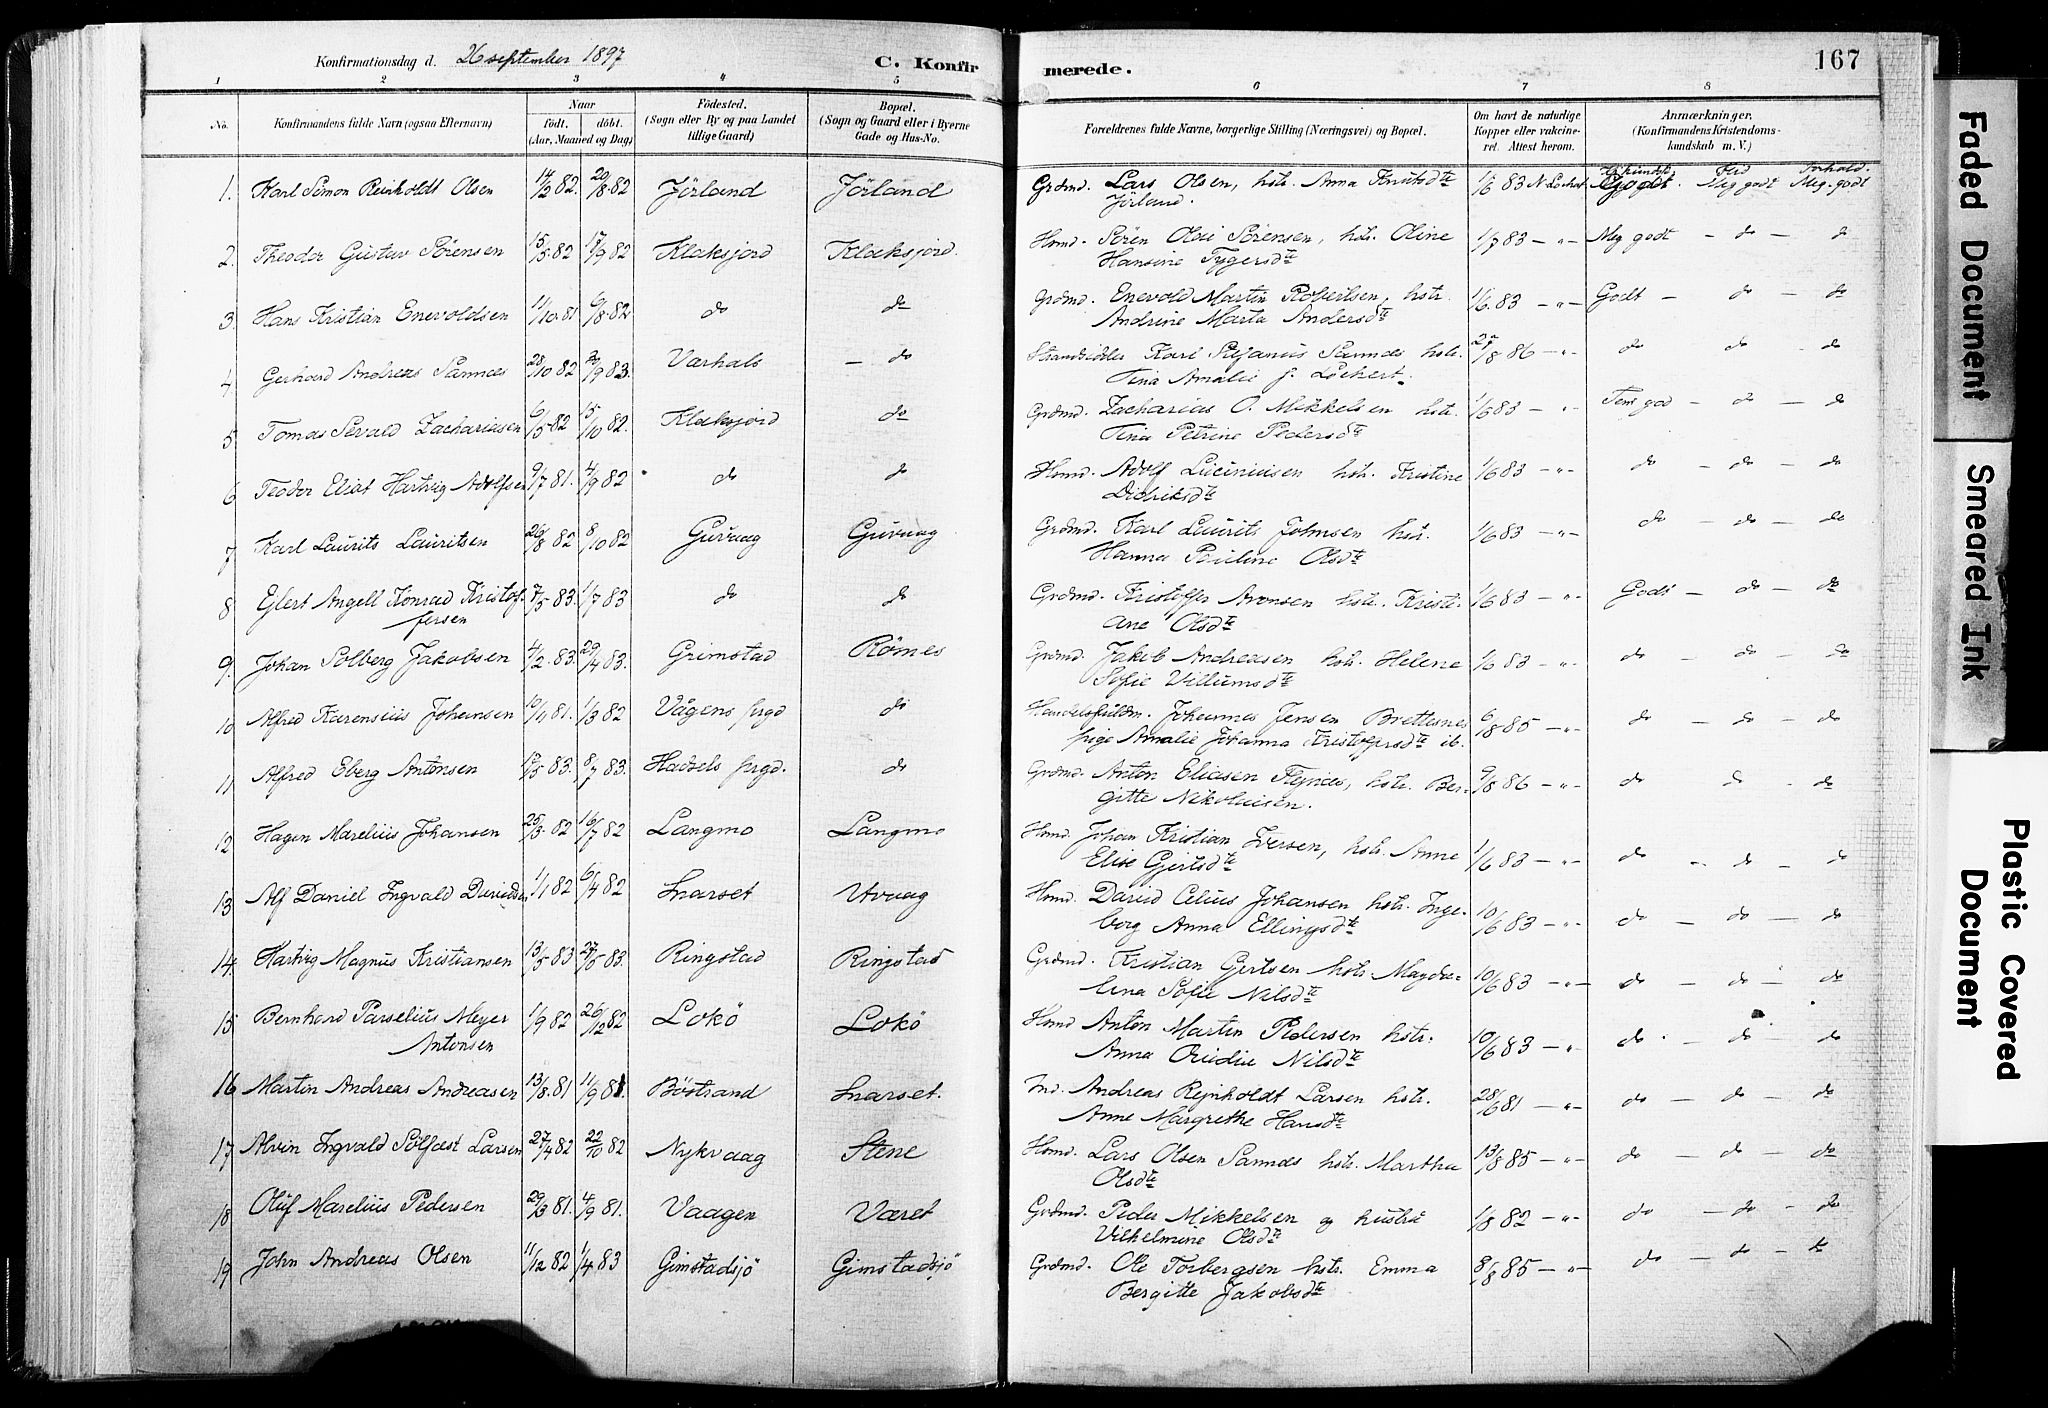 Konfirmationsdag d. 26 september 1897 C. Konfirmerede. 167
1 2 3 4 5 6 7 8
No.
Konfirmandens fulde Navn (ogsaa Efternavn)
Naar
født. døbt.
(Aar, Maaned og Dag)
Fødested.
(Sogn eller By og paa Landet
tillige Gaard)
Bopæl.
(Sogn og Gaard eller i Byerne
Gade og Hus-No.
Forældrenes fulde Navne, borgerlige Stilling (Næringsvei) og Bopæl.
Om havt de naturlige
Kopper eller vakcine-
ret. Attest herom.
Anmærkninger.
(Konfirmandens Kristendoms-
kundskab m. V.)
1. Karl Simon Reinholdt Olsen 14/2 82. 20/8 82 Jörland Jörland Grdmd. Lars Olsen, hstr. Anna Knutsdte 1/6 83 Godt. Meg godt Meg. godt
Jörland.
2. Theodor Gustav Sörensen 15/5 82 17/9 82 Klaksjord Klaksjord. Hsmd. Sören Olai Sörensen, hstr. Oline 1/7 83 - " - Meg godt - do - do
Hansine
3. Hans Kristian Enevoldsen 11/10 81 6/8 82 do do Grdmd. Enevold Martin Robertsen, hstr. 1/6 83 - " - Godt - do - do
Andrine Marta Andersdte
4. Gerhard Andreas Sannes 28/10 82 2/9 83. Varhals - do Strandsidder Karl Stefanus Sannes hstr. 27/8 86 - " - do do - do
Tina Amalie f. Lockert.
5 Tomas Sevald Zachariasen 6/5 82 15/10 82. Klaksjord do Grdmd. Zacharias O. Mikkelsen hstr. 1/6 83 - " - do - do
Tina Petrine Pedersdte
6 Teodor Eliot Hartvig Adolfsen 9/7 81. 4/9 82 do do Hsmd. Adolf hstr. Kristine 1/6 83 - " - do - do - do
Didriksdte
7 Karl Laurits Lauritsen 26/8 82 8/10 82 Guvaag Guvaag Grdmd. Karl Laurits Johnsen hstr. 1/6 83 - " - do - do - do
Hanna Pauline Olsdte
8 Ejlert Angell Konrad Kristof- 7/5 83. 1/7 83 do do Grdmd. Kristoffer Aronsen hstr. Kristi- 1/6 83 - " - Godt - do - do
fersen ane Olsdte
9. Johan Solberg Jakobsen 4/2. 83. 29/4 83. Grimstad Römes Grdmd. Jakob Andreasen hstr. Helene 1/6 83 - " - do - do - do
Sofie Villumsdte
10 Alfred Karensius Johansen 10/11 81. 1/3 82 Vågens prgd do Handelsfuldm. Johannes Jensen Brettesnes 6/8 85 - " - do - do - do
pige Amalie Johanna Kristoffersdte ib.
11 Alfred Eberg Antonsen 83. 8/7 83. Hadsels prgd. do Grdmd. Anton Eliasen Flynes, hstr. Ber- 9/8 86 - " - do do - do
gitte Nikolaisen.
12 Hagen Marelius Johansen 25/3 82 16/7 82 Langmo Langmo Hsmd. Johan Kristian Iversen, hstr. Anne 1/6 83 - " - do - do - do
Elise Gjertsdte
13 Alf Daniel Ingvald Davidsen 1/1 82 6/4 82 Snarset Utvaag Hsmd. David Celius Johansen hstr. Inge- 10/6 83 - " - do - do - do
borg Anna Ellingsdte
14. Hartvig Magnus Kristiansen 13/5 83 27/5 83. Ringstad Ringstad Grdmd. Kristian Gertsen hstr. Magda- 10/6 83 - " - do - do - do
lena Sofie Nilsdte
15 Bernhard Parselius Meyer 1/9 82 26/12 82 Lokö Lokö Hsmd Anton Martin Pedersen hstr. 10/6 83 - " - do - do - do
Antonsen Anna Ovidie Nilsdte
16 Martin Andreas Andreasen 13/8. 81 11/9 81. Böstrand Snarset. Ind. Andreas Rejnholdt Larsen hstr. 28/6 81 - " - do - do - do
Anne Margrethe Hansdte
17 Alvin Ingvald Solfast Larsen 27/4 82 22/10 82 Nykvaag Stene Hsmd. Lars Olsen Sannes hstr. Martha 13/8 85 - " - do - do - do
Olsdte
18 Oluf Marelius Pedersen 29/3 81. 4/9 81. Vaagen Været Grdmd. Peder Mikkelsen og hustru 1/8 82 - " - do - do - do
Vilhelmine Olsdte
19 John Andreas Olsen 11/12 82 1/4 83 Gimstadsjö Gimstadsjö Grdmd. Ole Torbergsen hstr. Emma 8/8 85 - " - do - do - do
Bergitte Jakobsdte
Faded Document
Smeared Ink
Plastic Covered
Document